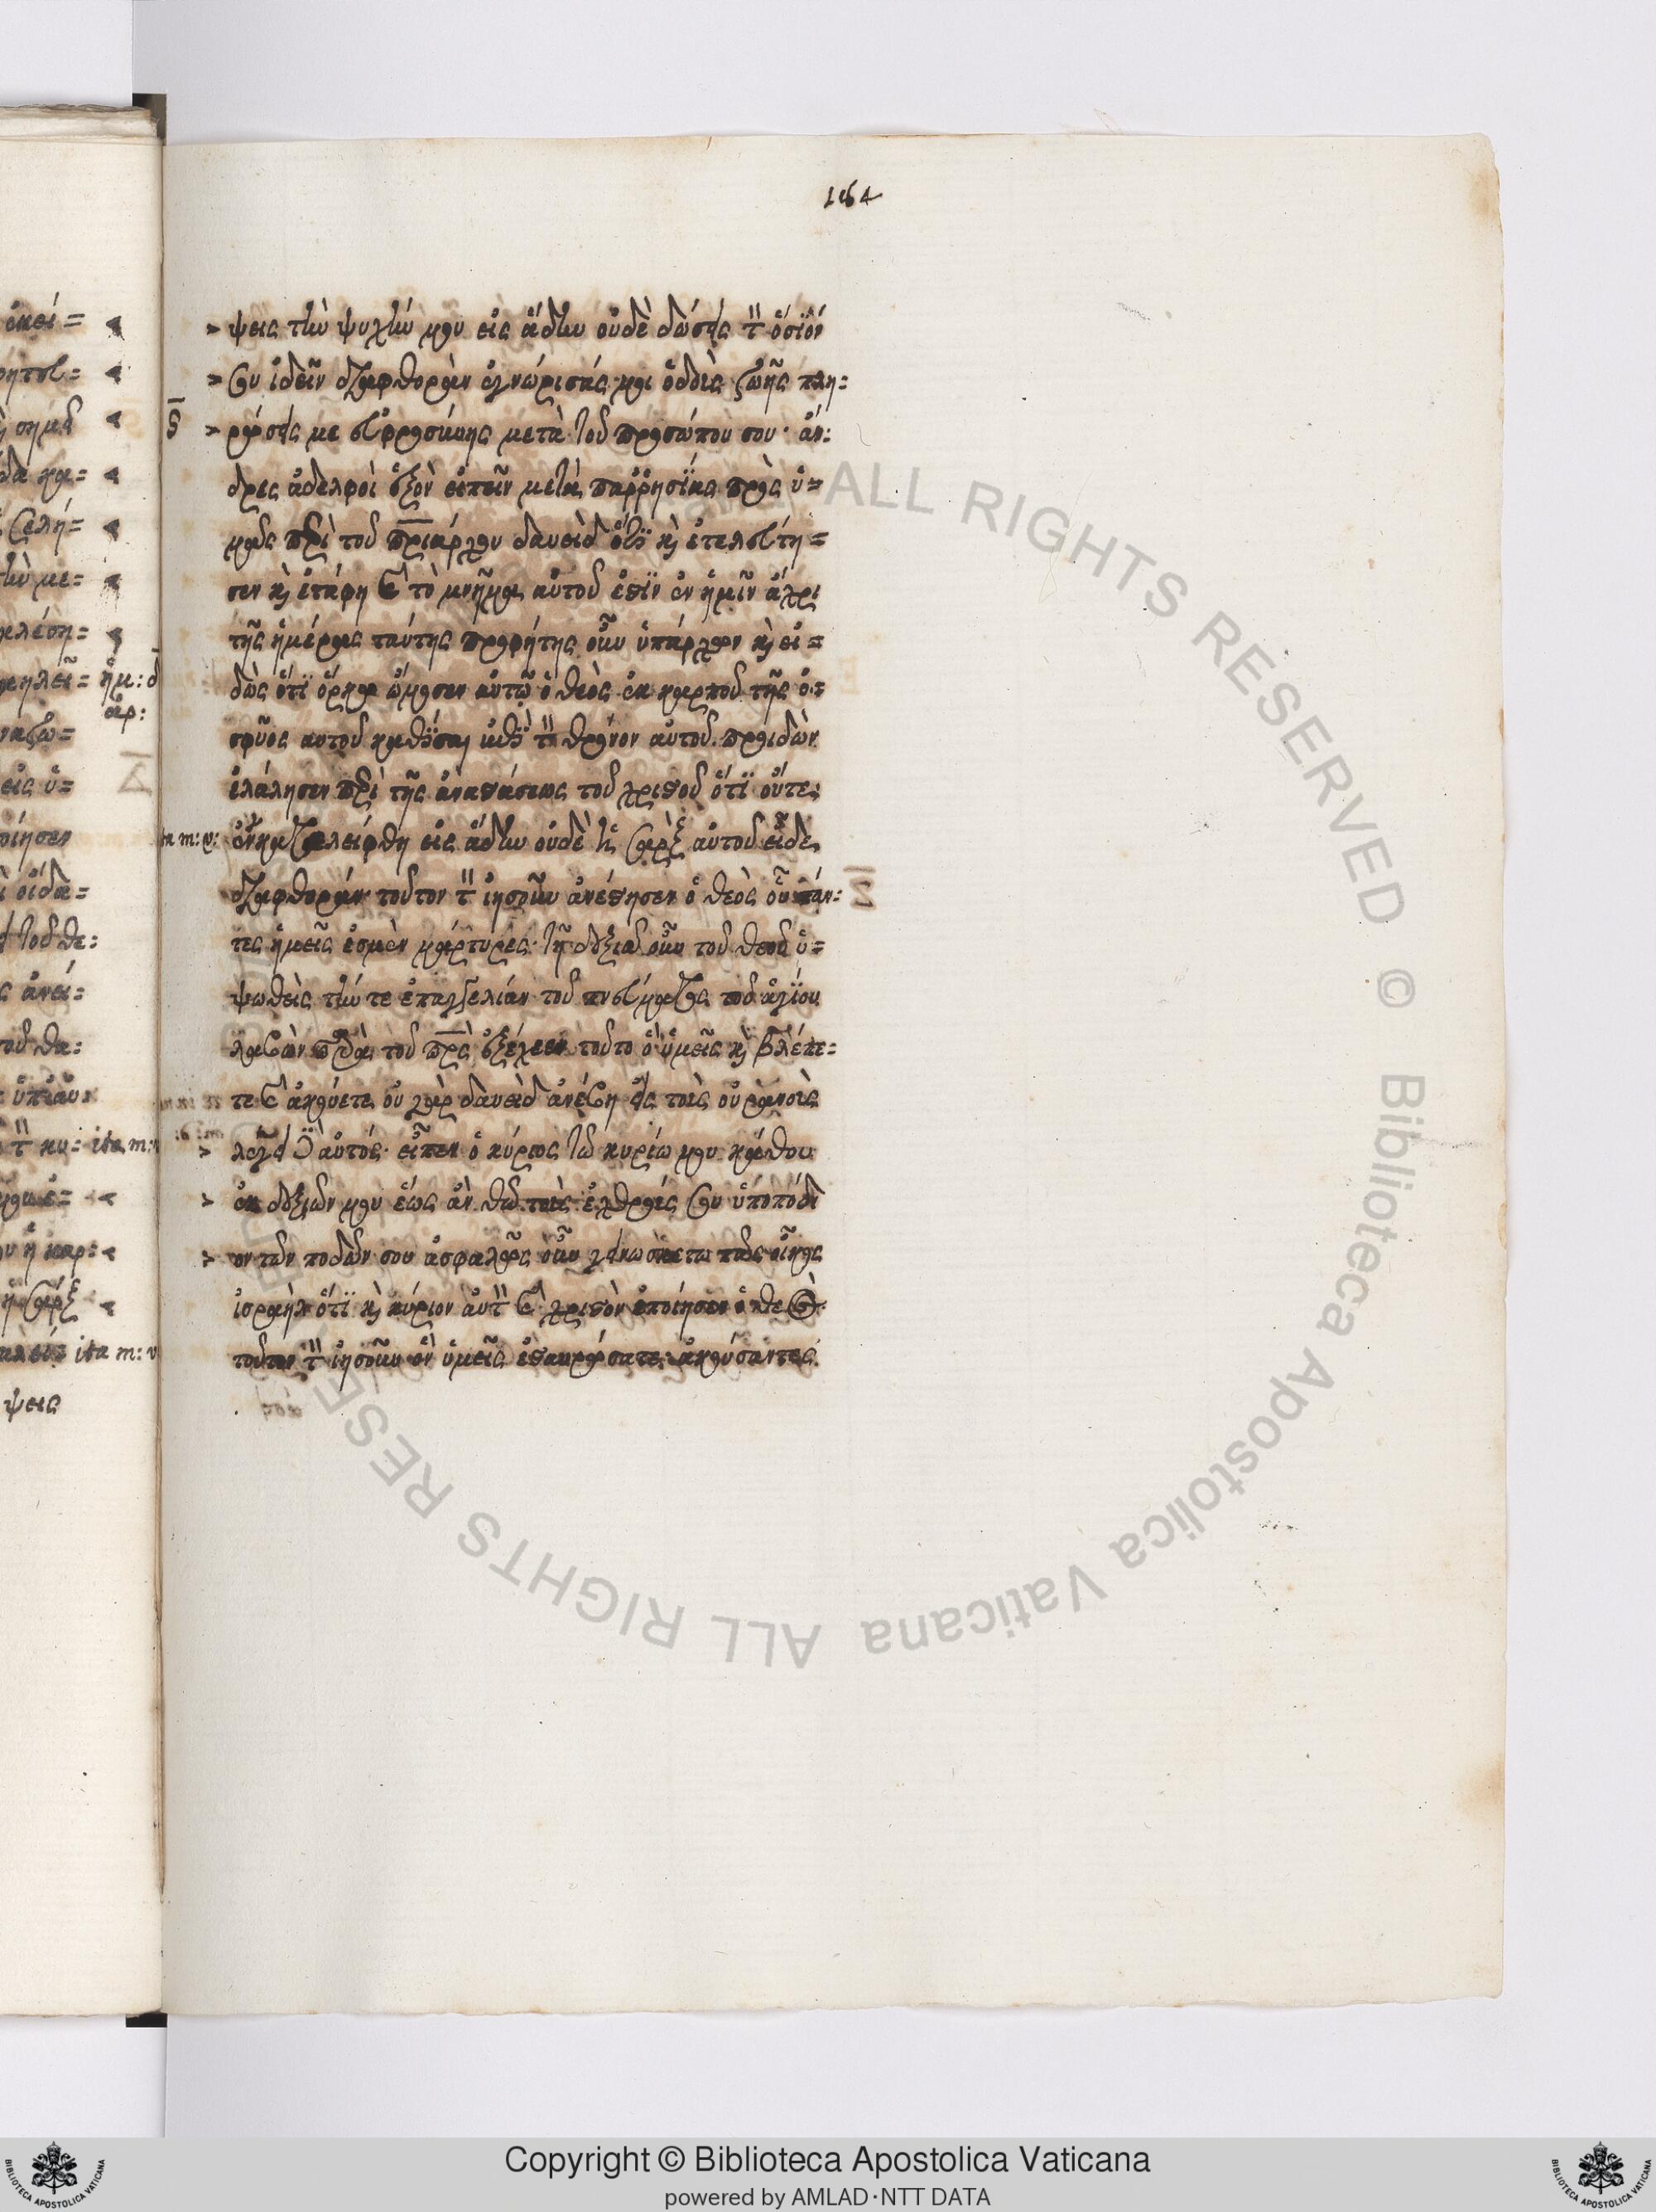 164
> ψεις τὴν ψυχήν μου εἰς ᾅδην οὐδὲ δώσεις τὸν ὅσϊόν
> σου ἰδεῖν διαφθοράν ἐγνώρισάς μοι ὁδοὺς ζωῆς πλη=
ς > ρώσεις με εὐφροσύνης μετὰ τοῦ προσώπου σου· ἄν:
δρες ἀδελφοὶ ἐξὸν εἰπεῖν μετὰ παρρησίας πρὸς ὑ=
μᾶς περὶ τοῦ πριάρχου δαυεὶδ ὅτϊ κὶ ἐτελεύτη=
σεν κὶ ἐτάφη κὶ τὸ μνῆμα αὐτοῦ ἐστϊν ἐν ἡμῖν ἄχρι
τῆς ἡμέρας ταύτης προφήτης οὖν ὑπάρχων κὶ εἰ=
δὼς ὅτϊ ὅρκῳ ὤμοσεν αὐτῷ ὁ θεὸς ἐκ καρποῦ τῆς ὀ=
σφῦος αυτοῦ καθϊσαι ἐπὶ τὸν θρόνον αὐτοῦ προιδὼν
ἐλάλησεν περὶ τῆς ἀναστάσεως τοῦ χριστοῦ ὅτϊ οὔτε
ita m: v: ἐνκατελείφθη εἰς ᾅδην οὐδὲ ἡ σὰρξ αὐτοῦ εἶδε
διαφθοράν τοῦτον τὸν ἰησοῦν ἀνέστησεν ὁ θεὸς οὗ πάν:
τες ἡμεῖς ἐσμὲν μάρτυρες· τῇ δεξιᾷ οὖν τοῦ θεοῦ ὑ=
ψωθεὶς τήν τε ἐπαγγελίαν τοῦ πνεύματος τοῦ ἁγίου
λαβὼν παρὰ τοῦ πρς ἐξέχεεν τοῦτο ὃ ὑμεῖς κὶ βλέπε=
τε κὶ ἀκούετε οὐ γὰρ δαυεὶδ ἀνέβη εἰς τοὺς οὐρανοὺς
> λέγει δὲ αὐτός· εἶπεν ὁ κύριος τῷ κυρίῳ μου κάθου
> ἐκ δεξιῶν μου ἕως ἂν θῶ τοὺς ἐχθρούς σου ὑποπόδι
> ον τῶν ποδῶν σου ἀσφαλῶς οὖν γινωσκέτω πᾶς οἶκος
ἰσραὴλ ὅτϊ κὶ κύριον αὐτὸν κὶ χριστὸν ἐποίησεν ὁ θεὸς
τοῦτον τὸν ἰησοῦν ὃν ὑμεῖς ἐσταυρώσατε· ἀκούσαντες